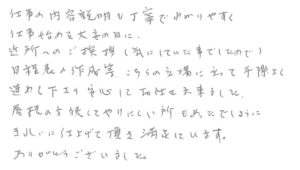 仕事の内容説明も丁寧でわかりやすく
仕事始めも大安の日に。
近所へのご挨拶（気にしていた事でしたので）
日程表の作成等 こちらの立場に立って手際よく
進めて下より安心してお任せ出来ました。
屋根の方使してやりにくい所もあったでしょうに
きれいに仕上げて頂き満足しています。
ありがとうございました。